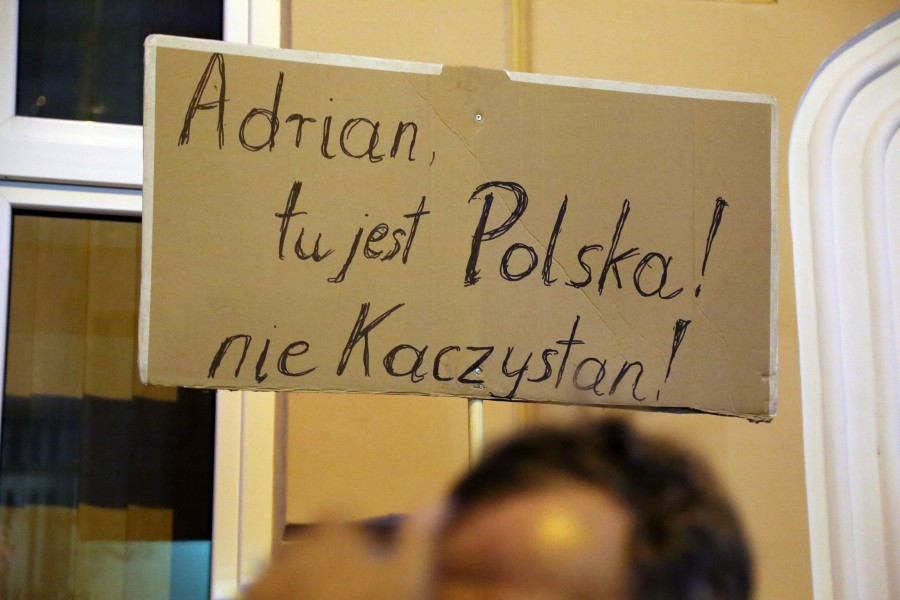 Adrian,
tu jest Polska!
nie Kaczystan!